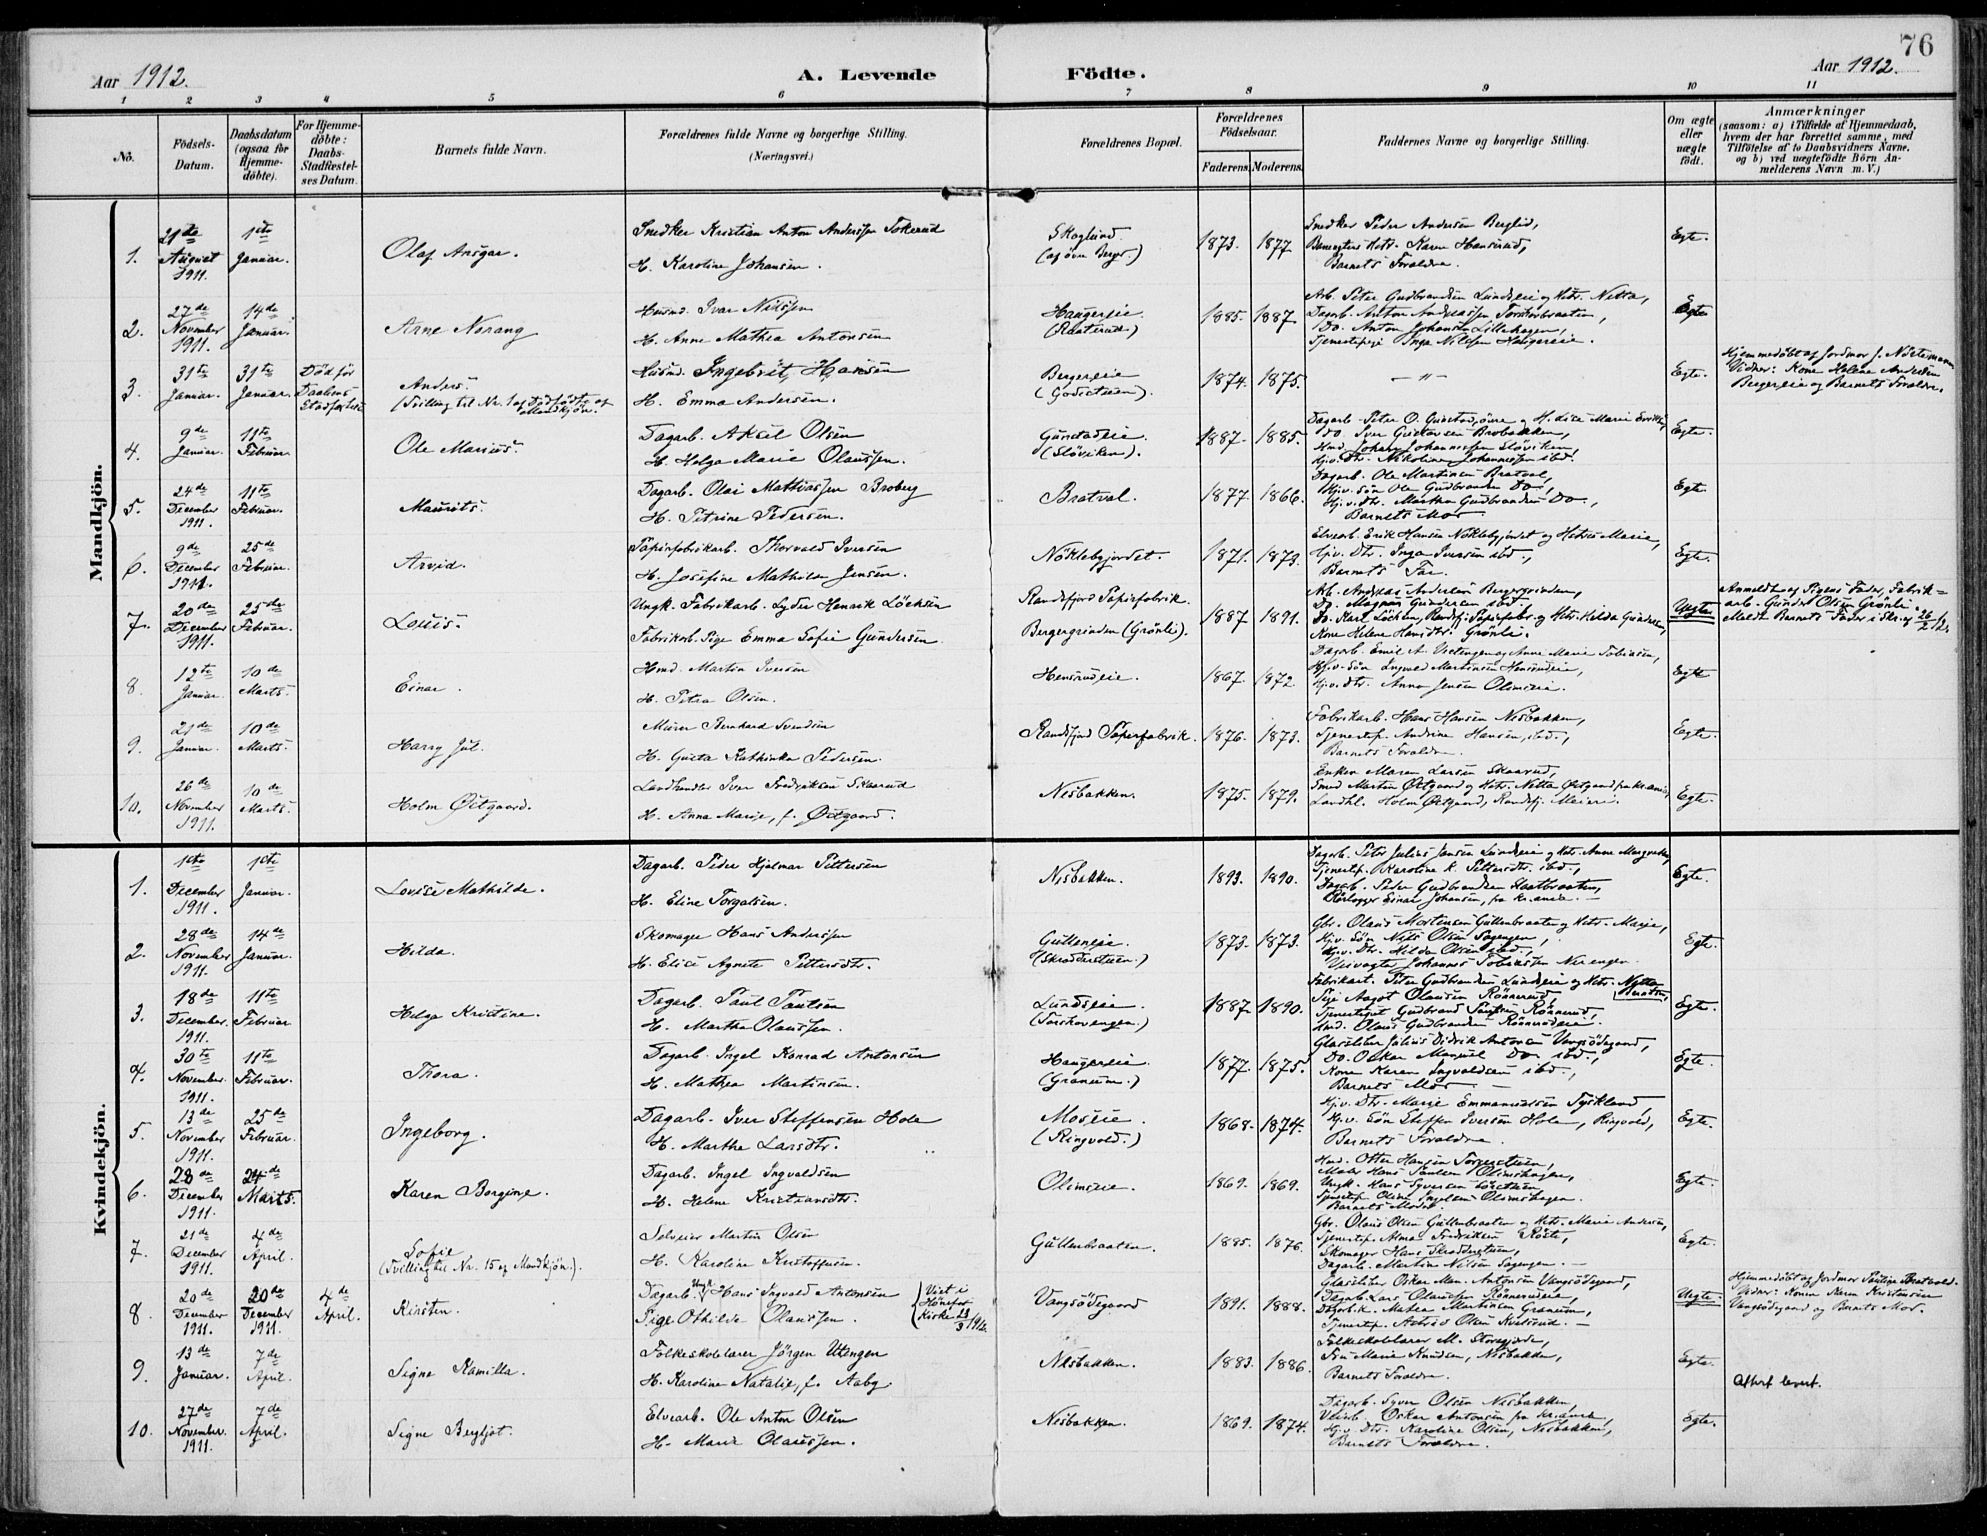 76
Aar 1912.
A. Levende Födte.
Aar 1912.
1 2 3 4 5 6 7 8 9 10 11
No.
Födsels-Datum.
Daabsdatum (ogsaa for Hjemme-döbte).
For Hjemme-döbte: Daabs-Stadfæstel-ses Datum.
Barnets fulde Navn.
Forældrenes fulde Navne og borgerlige Stilling.
(Næringsvei.)
Forældrenes Bopæl.
Forældrenes Födselsaar.
Faderens. Moderens.
Faddernes Navne og borgerlige Stilling.
Om ægte eller uægte födt.
Anmærkninger
(saasom: a) i Tilfælde af Hjemmedaab, hvem der har forrettet samme, med Tilföielse af to Daabsvidners Navne, og b) ved uægtefödte Börn An-melderens Navn m. V.)
Mandkjön.
1. 21de August 1911. 1ste Januar. Olaf Ansgar. Snedker Kristian Anton Anderssen Tokerud
H. Karoline Johansen. Skoglund (af övre Berger) 1873. 1877 Snedker Peder Andersen Berglid,
Karen Hanserud,
Barnets Forældre. Egte.
2. 27de November 1911. 14de Januar. Arne Norang Husmd. Ivar Nilssen
H. Anne Mathea Antonsen Haugerseie (Raaterud) 1885. 1887 Arb. Peter Gudbrandsen Lundseie og Hstr. Netta,
Dagarb. Anton Andreassen
Do. Anton Johansen Lillehagen,
Tjenestepige Inga Nilssen Haugerseie. Egte
3. 31te Januar. 31te Januar. Död för Daabens Stadfæstelse Anders.
(Tvilling til Nr. 1 af Dödfödte af Mandkjön. Husmd. Ingebrit Hansen
H. Emma Andersen. Bergerseie (Godictuen). 1874. 1875. — " — Egte. Hjemmedöbt af Jordmor J. Nöttemann
Vidner: Kone Helene Andersen
Bergerseie og Barnets Forældre.
4. 9de Januar. 11te Februar. Ole Marius. Dagarb. Aksel Olsen
H. Helga Marie Olaussen. Gunstadeie. (Slöviken). 1887. 1885. Dagarb. Peter O. Gunstad övre
Do. Iver Gustavsen Brobakken,
Hmd. Johan Johannessen Slöviken,
Hjv. Dtr. Nikoline Johannessen ibd. Egte.
5. 24de December 1911. 11te Februar. Maurits. Dagarb. Olai Mathiassen Broberg
H. Petrine Pedersen. Bratval. 1877. 1866. Dagarb. Ole Martinsen Bratval,
Hjv. Sön Ole Gudbrandsen Do,
Hjv. Dtr. Martha Gudbrandsen Do.,
Barnets Mor Egte.
6. 9de December 1911. 25de Februar. Arvid. Papirfabrikarb. Thorvald Iversen
H. Josefine Mathilde Jensen. Nöklebyjordet. 1871. 1873. Elvearb. Erik Hansen Nöklebyjordet og Hstr. Marie,
Hjv. Dtr. Inga Iversen ibd.,
Barnets Far. Egte.
7. 20de December 1911. 25de Februar. Louis. Ungk. Fabrikarb. Lyder Henrik Löcksen
Fabrikarb. Pige Emma Sofie Gundersen. Randsfjord Papirfabrik.
Bergergrinden (Grönli). 1887 1891. Arb. Andreas Andersen Bergergrinden,
Do. Magnus Gundersen ibd.
Do. Karl Löcksen, Randsfj. Papirfabr. og Hstr. Hilda Gundersen,
Kone Helene Hansdtr. Grönli. Uegte Anmeldt af Pigens Fader, Fabrik=
arb. Gunder Olsen Grönli.
8. 12te Januar. 10de Marts. Einar. Hmd. Martin Iversen
H. Petra Olsen. Hensrudeie. 1867. 1872. Dagarb. Emil A. og Anne Marie Tobiasen,
Hjv. Sön Ingvald Martinsen Hensrudeie,
Hjv. Dtr. Anna Jensen Olimseie. Egte
9. 21de Januar. 10de Marts. Harry Jul. Murer Bernhard Svendsen
H. Gusta Kathinka Pedersen. Randsfjord Papirfabrik. 1876. 1873. Fabrikarb. Hans Hansen Nesbakken,
Tjenestep. Andrine Hansen, ibd.,
Barnets Forældre. Egte.
10. 26de November 1911. 10de Marts. Holm Östgaard. Landhandler Iver Fredriksen Skaarud
H. Anna Marie, f. Östgaard. Nesbakken. 1875. 1879. Enken Maren Larsen Skaarud,
Smed Martin Östgaard og Hstr. Netta Östgaard fra Kr.ania,
Landhl. Holm Östgaard, Randsfj. Meieri. Egte.
Kvindekjön.
1. 1ste December 1911. 1ste Januar. Lovise Mathilde. Dagarb. Peder Hjalmar Pettersen
H. Eline Torgalsen. Nesbakken. 1893. 1890. Dagarb. Peter Julius Jansen Lundseie og Hstr. Anne Margrethe,
Tjenestep. Karoline K. Pettersdtr. ibd.,
Dagarb. Peder Gudbrandsen
Einar Johansen, fra Kr.ania. — Egte.
2. 28de November 1911. 14de Januar. Hilda. Skomager Hans Anderssen
H. Elise Agnete Pettersdtr. Gulleneie. (Skrædderstuen.) 1873. 1873. Gbr. Olaus Mortensen Gullenbraaten og Hstr. Marie,
Hjv. Sön Nils Olsen Sagengen,
Hjv. Dtr. Hilda Olsen ibd.,
Johannes Tobiassen Nerengen. Egte.
3. 18de December. 1911. 11te Februar Helga Kristine. Dagarb. Paul Paulsen
H. Martha Olaussen. Lundseie. (Torshovengen.) 1887 1890. Fabrikarb. Peter Gudbrandsen Lundseie og Hstr. Netta
Pige Aagot Olausen Rönnerud,
Tjenestegut Gudbrand Paulsen Rönnerud,
Hmd. Olaus Gudbrandsen Rönnerudeie. Egte.
4. 30te November. 1911. 11te Februar. Thora. Dagarb. Ingel Konrad Antonsen
H. Mathea Martinsen. Haugerseie. (Granum.) 1877. 1875. Glassliber Julius Didrik Antonsen Vangsödegaard,
Do. Oskar Manuel Do ibd.,
Kone Karen Ingvaldsen ibd.,
Barnets Mor — Egte.
5. 13de November 1911. 25de Februar. Ingeborg. Dagarb. Iver Steffensen Hole
H. Marthe Larsdtr. Moseie (Ringvold.) 1868. 1874. Hjv. Dtr. Marie Emmanuelsen Tyskland,
Hjv. Sön Steffen Iversen Hole, Ringvold,
Barnets Forældre Egte.
6. 28de December 1911. 24de Marts. Karen Borgine. Dagarb. Ingel Ingvaldsen
H. Helene Kristiansdtr. Olimseie. 1869. 1869. Hmd. Otter Hansen
Maler Hans Paulsen Olimshagen,
Ungk. Hans Syversen
Tjenestep. Oline Ingelsen Olimshagen.
Barnets Moder. Egte.
7. 21de December 1911. 4de April. Sofie
(Tvilling til Nr. 15 af Mandkjön.). Selveier Martin Olsen
H. Karoline Kristoffersen. Gullenbraaten. 1885. 1876. Gbr. Olaus Olsen Gullenbraaten og Hstr. Marie Andersen,
Tjenestep. Alma Fredriksen Röste,
Skomager Hans Skrædderstuen,
Dagarb. Martin Nilsen Sagengen. — Egte.
8. 20de December 1911. 20de December 1911. 4de April. Kirsten. Dagarb. Ungk. Hans Ingvald Antonsen
Pige Othilde Olaussen. (Viet i Hönefos Kirke 23/3 1912. Vangsödegaard 1891. 1888. Glassliber Oskar Man. Antonsen Vangsödegaard,
Dagarb. Lars Olaussen Rönnerudeie,
Matea Martinsen Granum,
Tjenestep. Astrid Olsen — Uegte. Hjemmedöbt af Jordmor Pauline Bratvold.
Vidner: Konen Karen Kristensen
Vangsödegaard og Barnets Mor.
9. 13de Januar. 7de April. Signe Kamilla. Folkeskolelærer Jörgen Utengen
H. Karoline Natalie, f. Aaby. Nesbakken. 1883. 1886. Folkeskolelærer M. Storegjorde,
Fru Marie Knudsen, Nesbakken,
Barnets Forældre. Egte. Attest levert.
10. 27de November. 1911. 7de April. Signe Bergljot. Elvearb. Ole Anton Olsen
H. Marie Olaussen. Nesbakken. 1869. 1874. Dagarb. Syver Olsen Nesbakken,
Oskar Antonsen fra Kr.ania,
Hjv. Dtr. Karoline Olsen, Nesbakken,
Barnets Forældre. Egte.